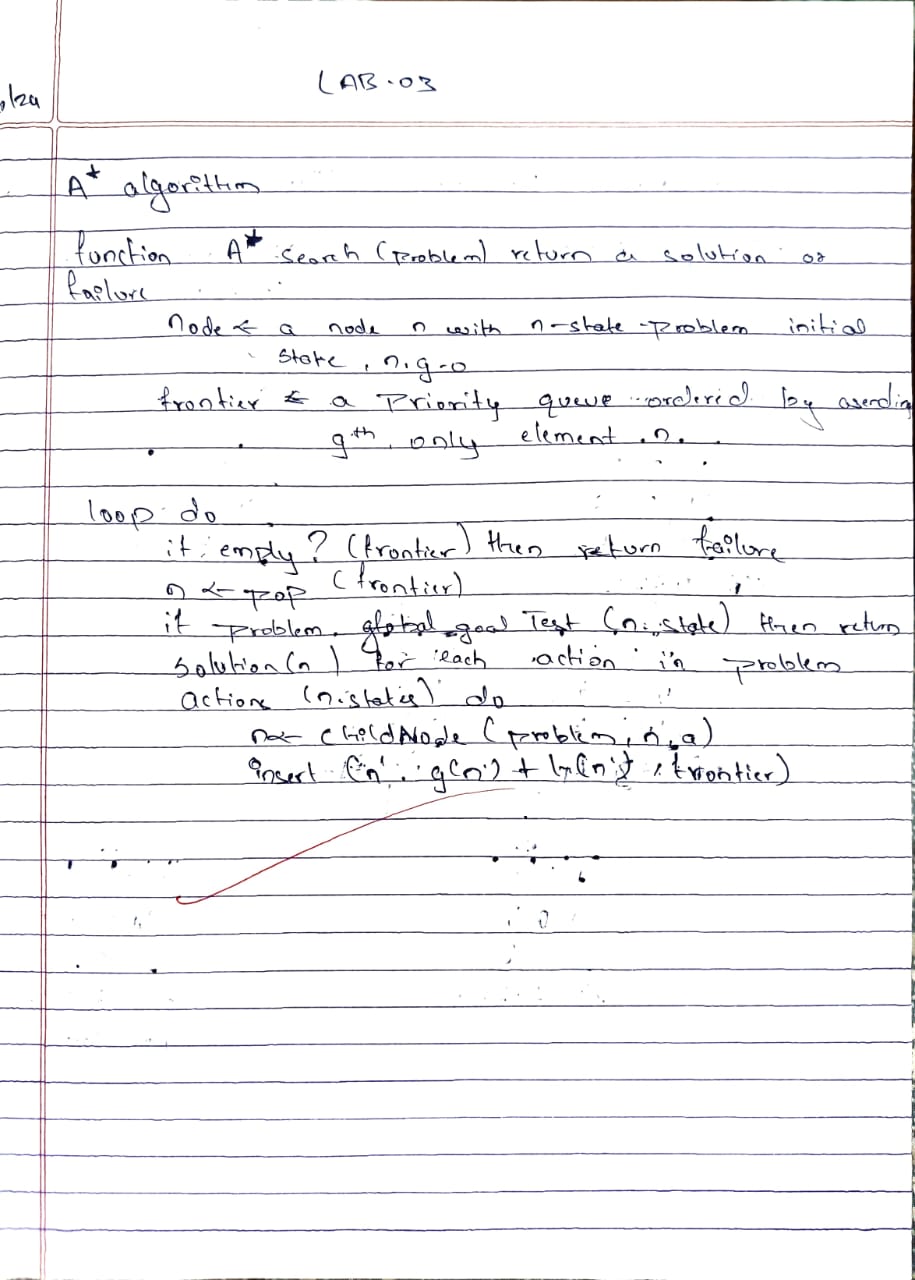 LAB-03
/24
A* algorithm
function A* search (Problem) return a solution or
failure
node ← a node n with n-state-problem initial
state, n.g-0
frontier ← a Priority queue ordered by asending
gth only element n.
loop do
if empty? (frontier) then return failure
n ← pop (frontier)
if problem. goal Test (n.state) then return
solution (n) for each action in problem
actions (n.states) do
n← childNode (problem, n, a)
insert (n', g(n') + h(n'), frontier)